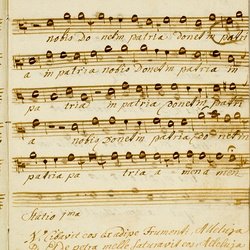 nobis Donet in patria Donet in patri
a in patria nobis Donet in patria in
pa tria in patria Donet in patria
a nobis Donet in patria Do net in
patria pa tria a men a men
Statio 1ma
V. Cibavit eos ex adipe Frumenti, Alleluja
R. Et De petra melle saturavit eos Alleluja